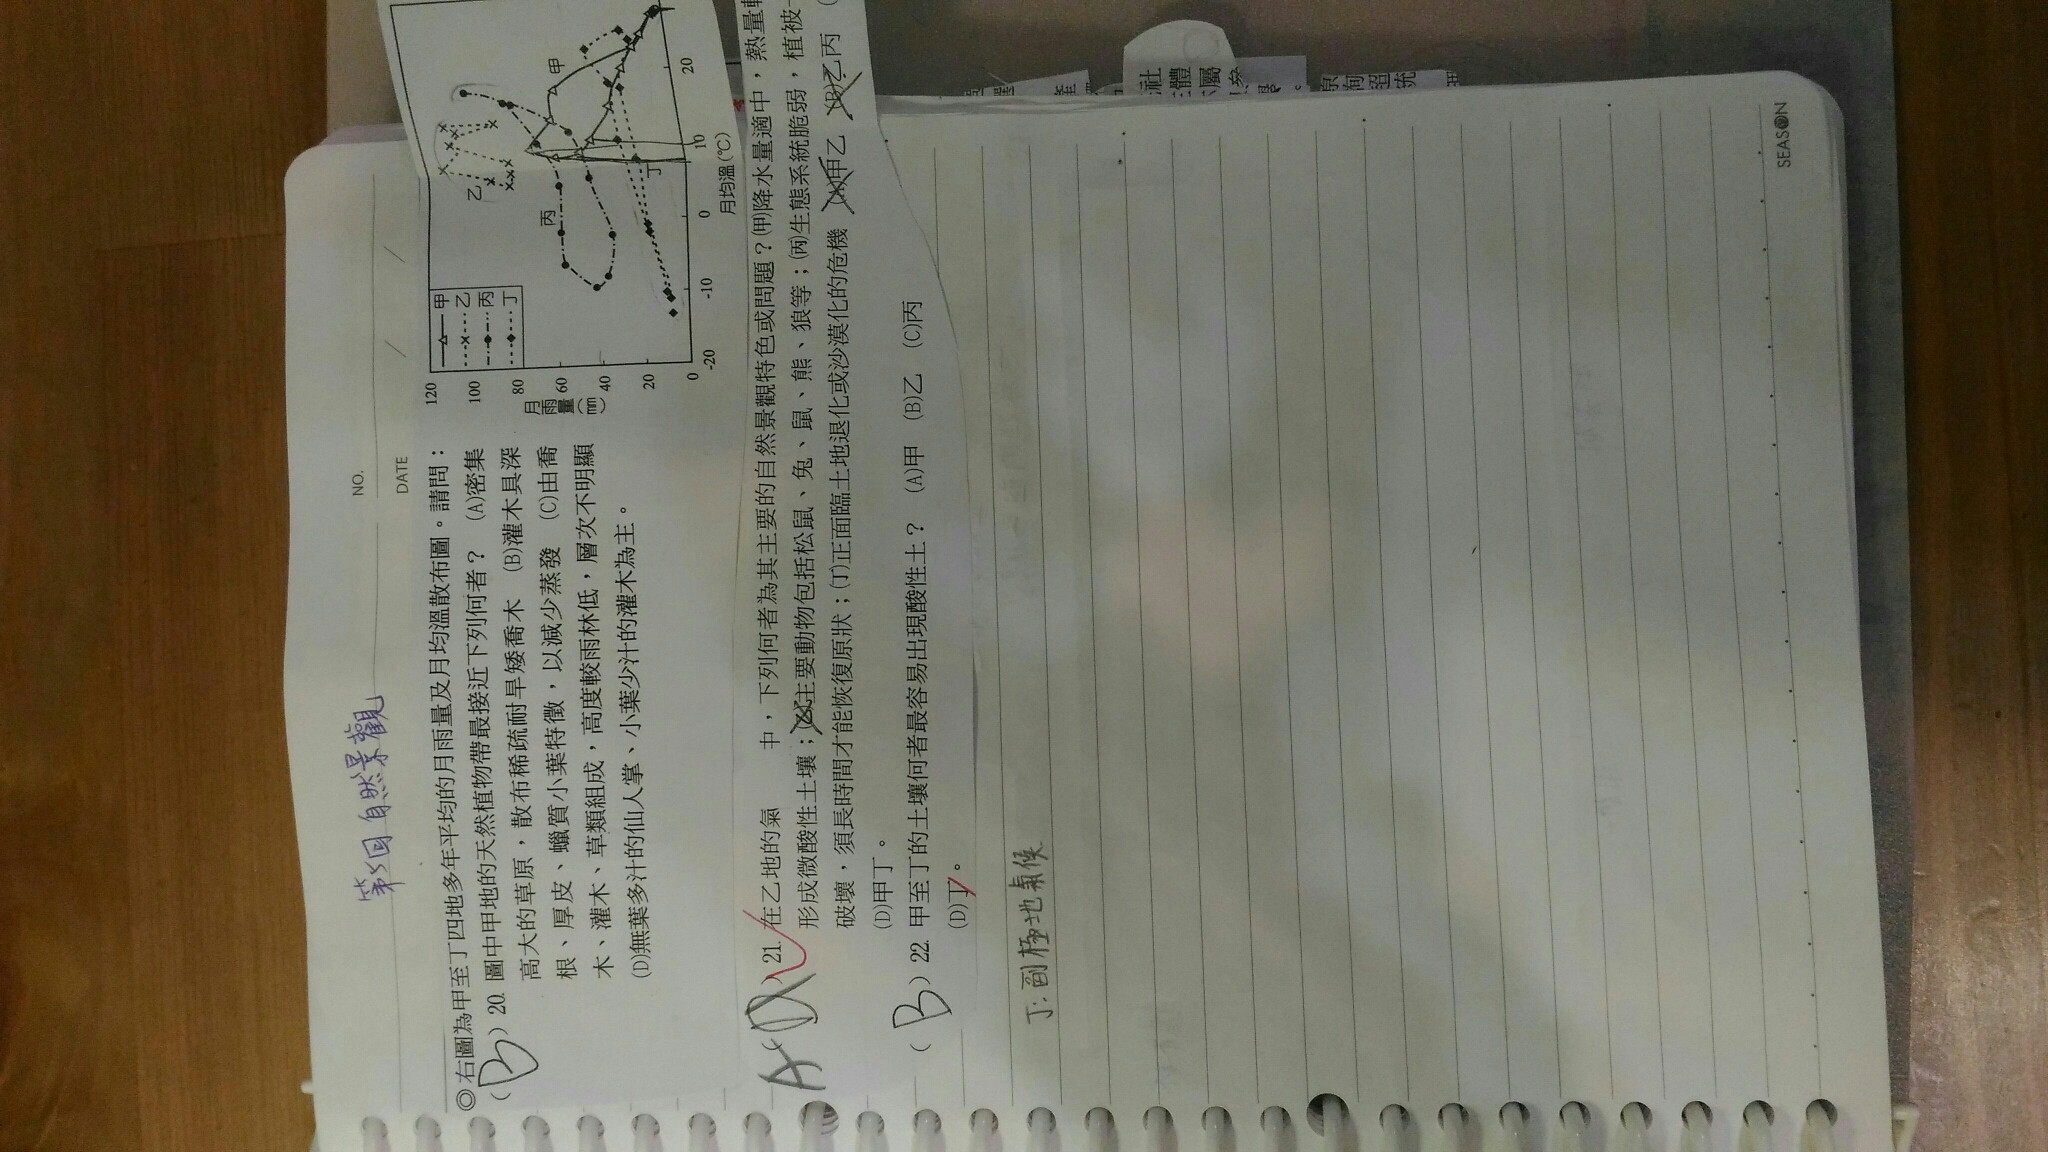 NO.
DATE / /
第5回自然景觀
◎右圖為甲至丁四地多年平均的月雨量及月均溫散布圖。請問：
(B) 20. 圖中甲地的天然植物帶最接近下列何者？ (A)密集
高大的草原，散布稀疏耐旱矮喬木 (B)灌木具深
根、厚皮、蠟質小葉特徵，以減少蒸發 (C)由喬
木、灌木、草類組成，高度較雨林低，層次不明顯
(D)無葉多汁的仙人掌、小葉少汁的灌木為主。
甲
乙
丙
丁
120
100
80
60
40
20
0
月雨量(mm)
-20 -10 0 10 20
月均溫(℃)
甲
乙
丙
丁
A (D) 21. 在乙地的氣 中，下列何者為其主要的自然景觀特色或問題？(甲)降水量適中，熱量
形成微酸性土壤；(乙)主要動物包括松鼠、兔、鼠、熊、狼等；(丙)生態系統脆弱，植被
破壞，須長時間才能恢復原狀；(丁)正面臨土地退化或沙漠化的危機 (A)甲乙 (B)乙丙 (
(D)甲丁。
(B) 22. 甲至丁的土壤何者最容易出現酸性土？ (A)甲 (B)乙 (C)丙
(D)丁。
丁:副極地氣候
SEASON